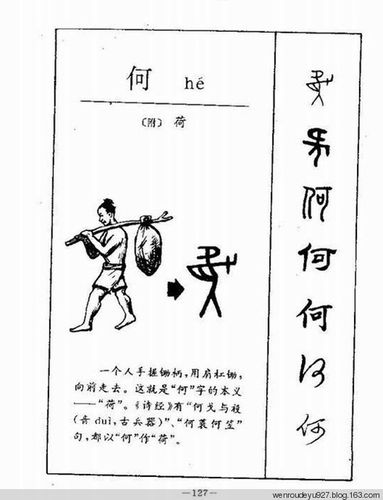 何 hé
（附）荷
一个人手握锄柄，用肩杠锄，
向前走去。这就是“何”字的本义
——“荷”。《诗经》有“何戈与祋
（音duì，古兵器）”、“何蓑何笠”
句，都以“何”作“荷”。
何
何
何
何
何
—127—
wenroudeyu927.blog.163.com